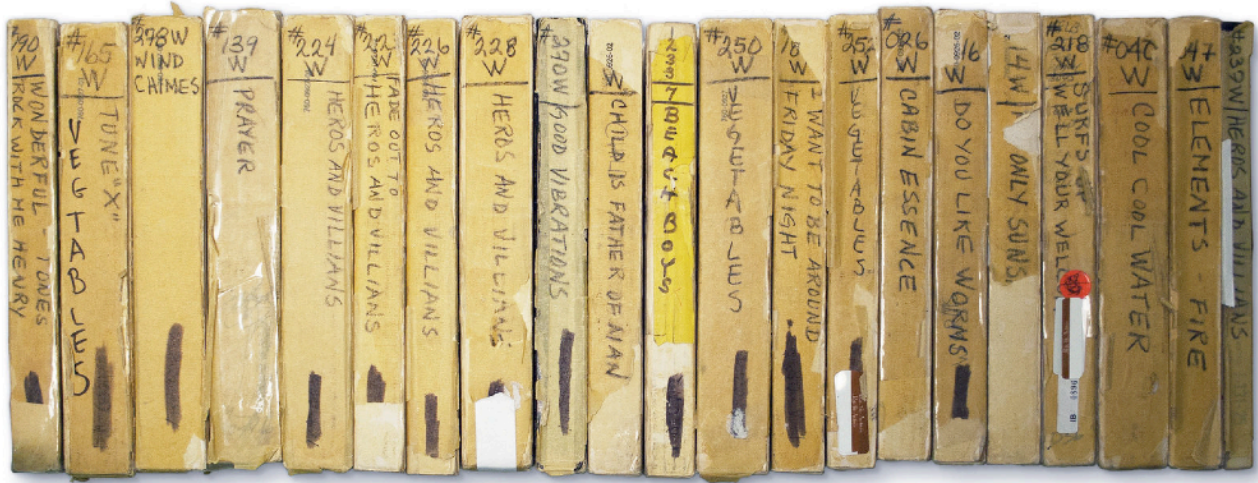 #190
W
WONDERFUL - TONES
ROCK WITH ME HENRY
#165
W
TUNE "X"
VEGTABLES
278W
WIND
CHIMES
#139
W
PRAYER
#224
W
HEROS AND VILLIANS
W
FADE OUT TO
HEROS AND VILLIANS
#226
W
HEROS AND VILLIANS
#228
W
HEROS AND VILLIANS
#270W
GOOD VIBRATIONS
W
CHILD IS FATHER OF MAN
BEACH BOYS
#250
W
VEGETABLES
W
I WANT TO BE AROUND
FRIDAY NIGHT
#252
W
VEGETABLES
#026
W
CABIN ESSENCE
16
W
DO YOU LIKE WORMS
14W
ONLY SUNS
#218
W
SURFS UP
WELL YOUR WELC
#04C
W
COOL COOL WATER
47
W
ELEMENTS - FIRE
#239W
HEROS AND VILLIANS